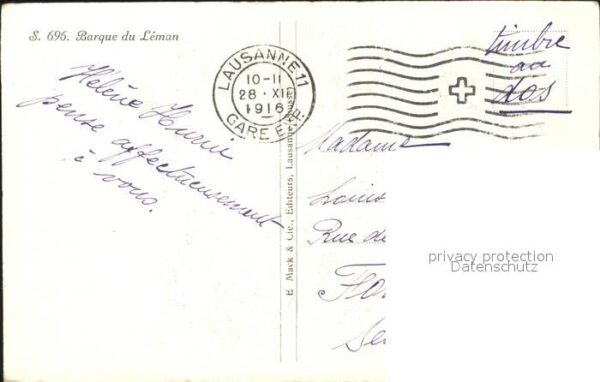 S. 696. Barque du Léman
LAUSANNE 11
10-11
28.XII
1916
GARE EXP.
timbre
au
dos
Hélène
pense affectueusement
à vous.
E. Mack & Cie., Editeurs, Lausanne
Madame
Louis
Rue de
privacy protection
Datenschutz